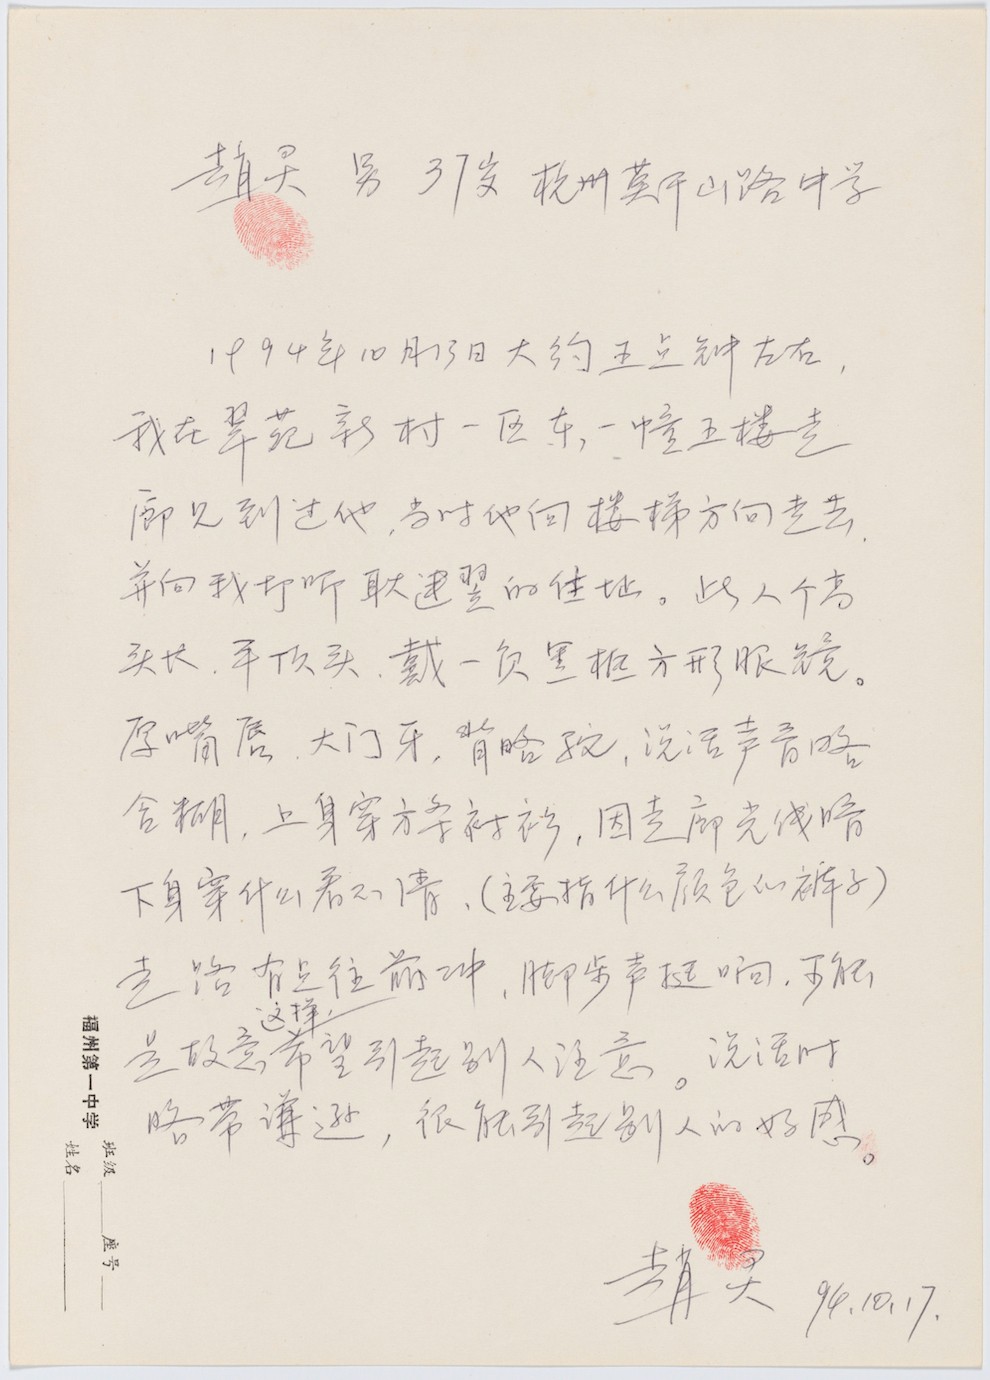 赵灵 男 37岁 杭州莫干山路中学
1994年10月13日大约五点钟左右,
我在翠苑新村一区东一幢五楼走
廊见到过他,当时他向楼梯方向走去,
并向我打听耿建翌的住址。此人个高
头长、平顶头、戴一负黑框方形眼镜。
厚嘴唇、大门牙,背略驼,说话声音略
含糊,上身穿方条衬衫,因走廊光线暗
下身穿什么看不清、(主要指什么颜色的裤子)
走路有点往前冲,脚步声挺响,可能
是故意这样,希望引起别人注意。说话时
略带谦逊,很能引起别人的好感。
赵灵 94.10.17.
福州第一中学
班级 座号
姓名